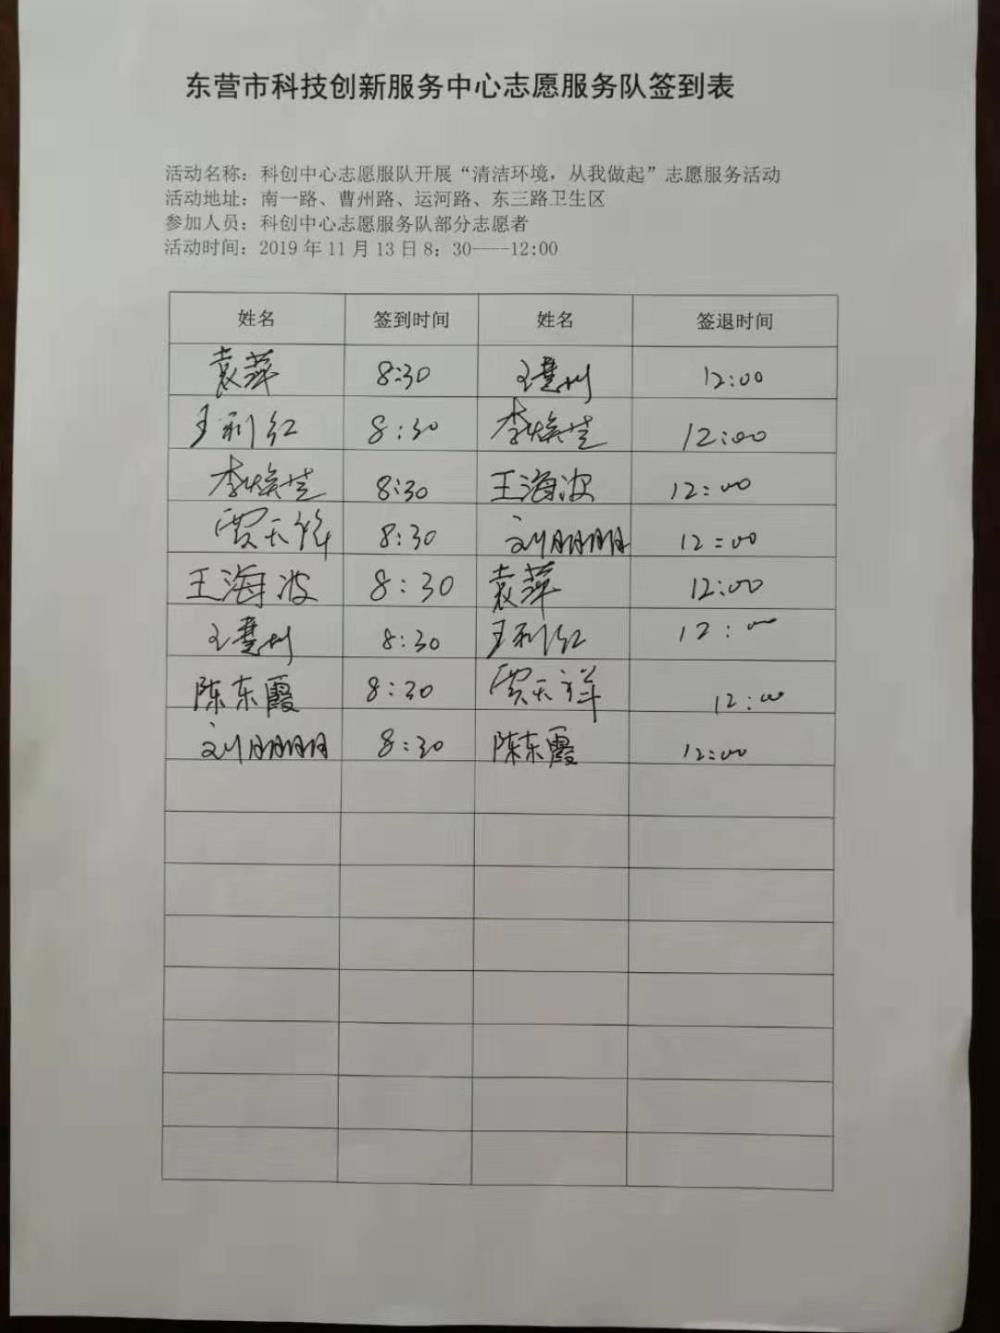 东营市科技创新服务中心志愿服务队签到表
活动名称：科创中心志愿服队开展“清洁环境，从我做起”志愿服务活动
活动地址：南一路、曹州路、运河路、东三路卫生区
参加人员：科创中心志愿服务队部分志愿者
活动时间：2019年11月13日8：30——12:00
姓名 签到时间 姓名 签退时间
袁萍 8:30 王慧州 12:00
王利红 8:30 李焕芝 12:00
李焕芝 8:30 王海波 12:00
贾天祥 8:30 刘朋朋 12:00
王海波 8:30 袁萍 12:00
王慧州 8:30 王利红 12:00
陈东霞 8:30 贾天祥 12:00
刘朋朋 8:30 陈东霞 12:00